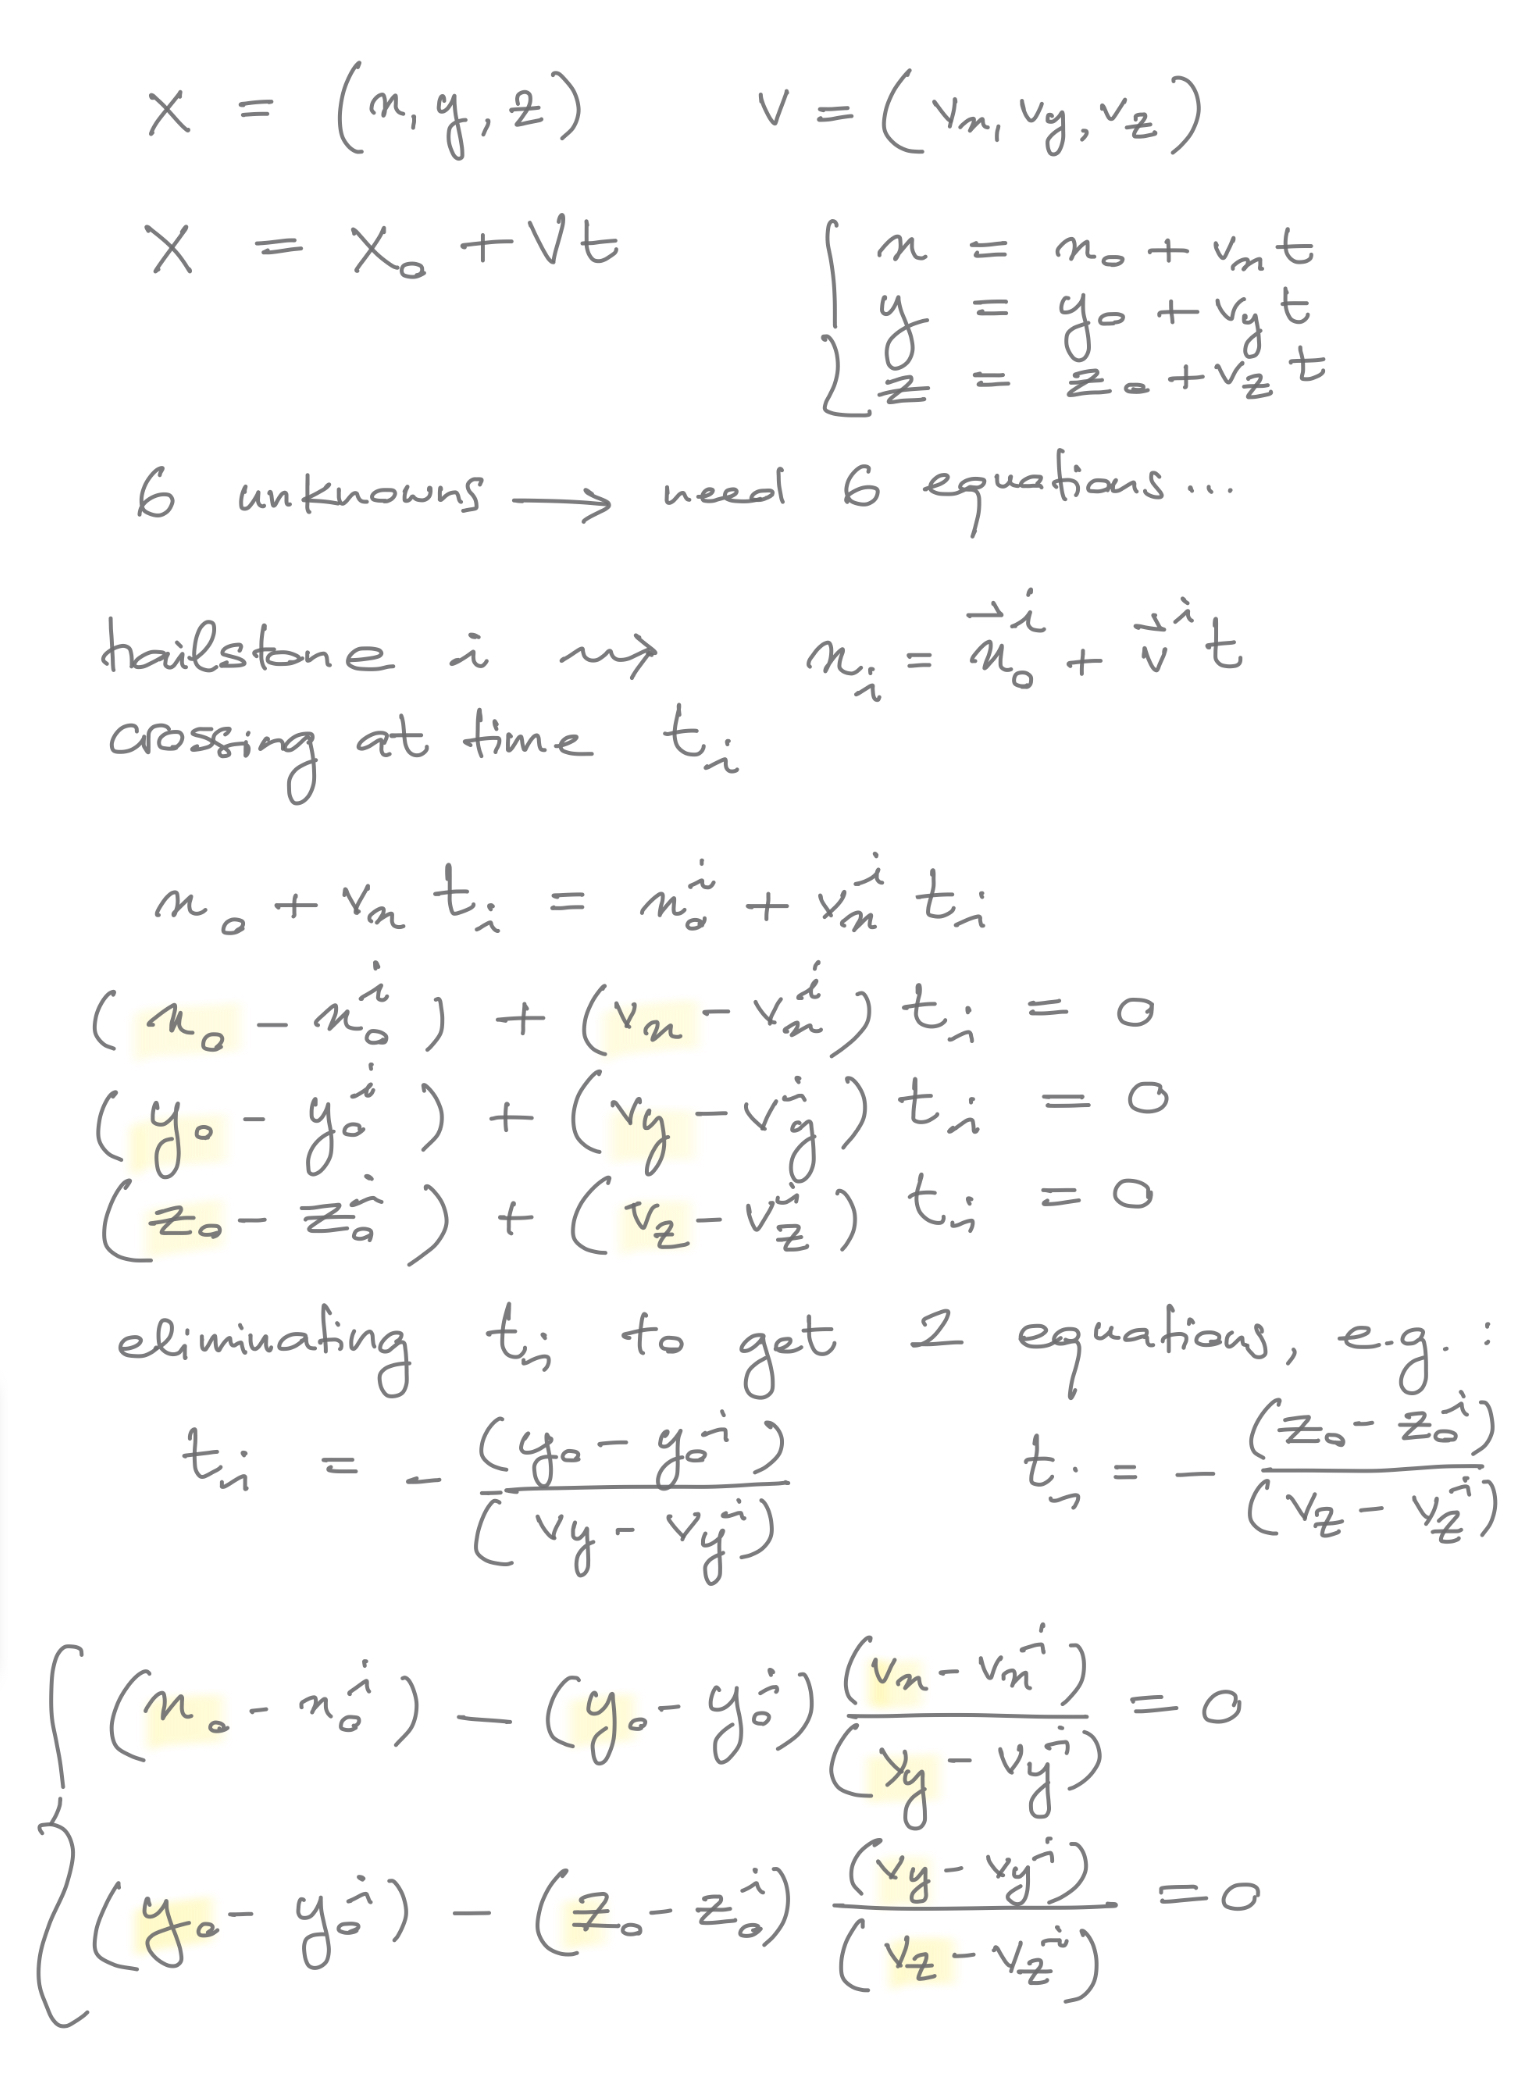 X = (x, y, z)    V = (vx, vy, vz)
X = X₀ + Vt    { x = x₀ + vx t
y = y₀ + vy t
z = z₀ + vz t
6 unknowns ⟶ need 6 equations...
hailstone i ⇝ x_i = x⃗₀ⁱ + v⃗ⁱ t
crossing at time t_i
x₀ + vx t_i = x₀ⁱ + vxⁱ t_i
(x₀ - x₀ⁱ) + (vx - vxⁱ) t_i = 0
(y₀ - y₀ⁱ) + (vy - vyⁱ) t_i = 0
(z₀ - z₀ⁱ) + (vz - vzⁱ) t_i = 0
eliminating t_i to get 2 equations, e.g. :
t_i = - (y₀ - y₀ⁱ) / (vy - vyⁱ)    t_i = - (z₀ - z₀ⁱ) / (vz - vzⁱ)
{ (x₀ - x₀ⁱ) - (y₀ - y₀ⁱ) (vx - vxⁱ) / (vy - vyⁱ) = 0
(y₀ - y₀ⁱ) - (z₀ - z₀ⁱ) (vy - vyⁱ) / (vz - vzⁱ) = 0